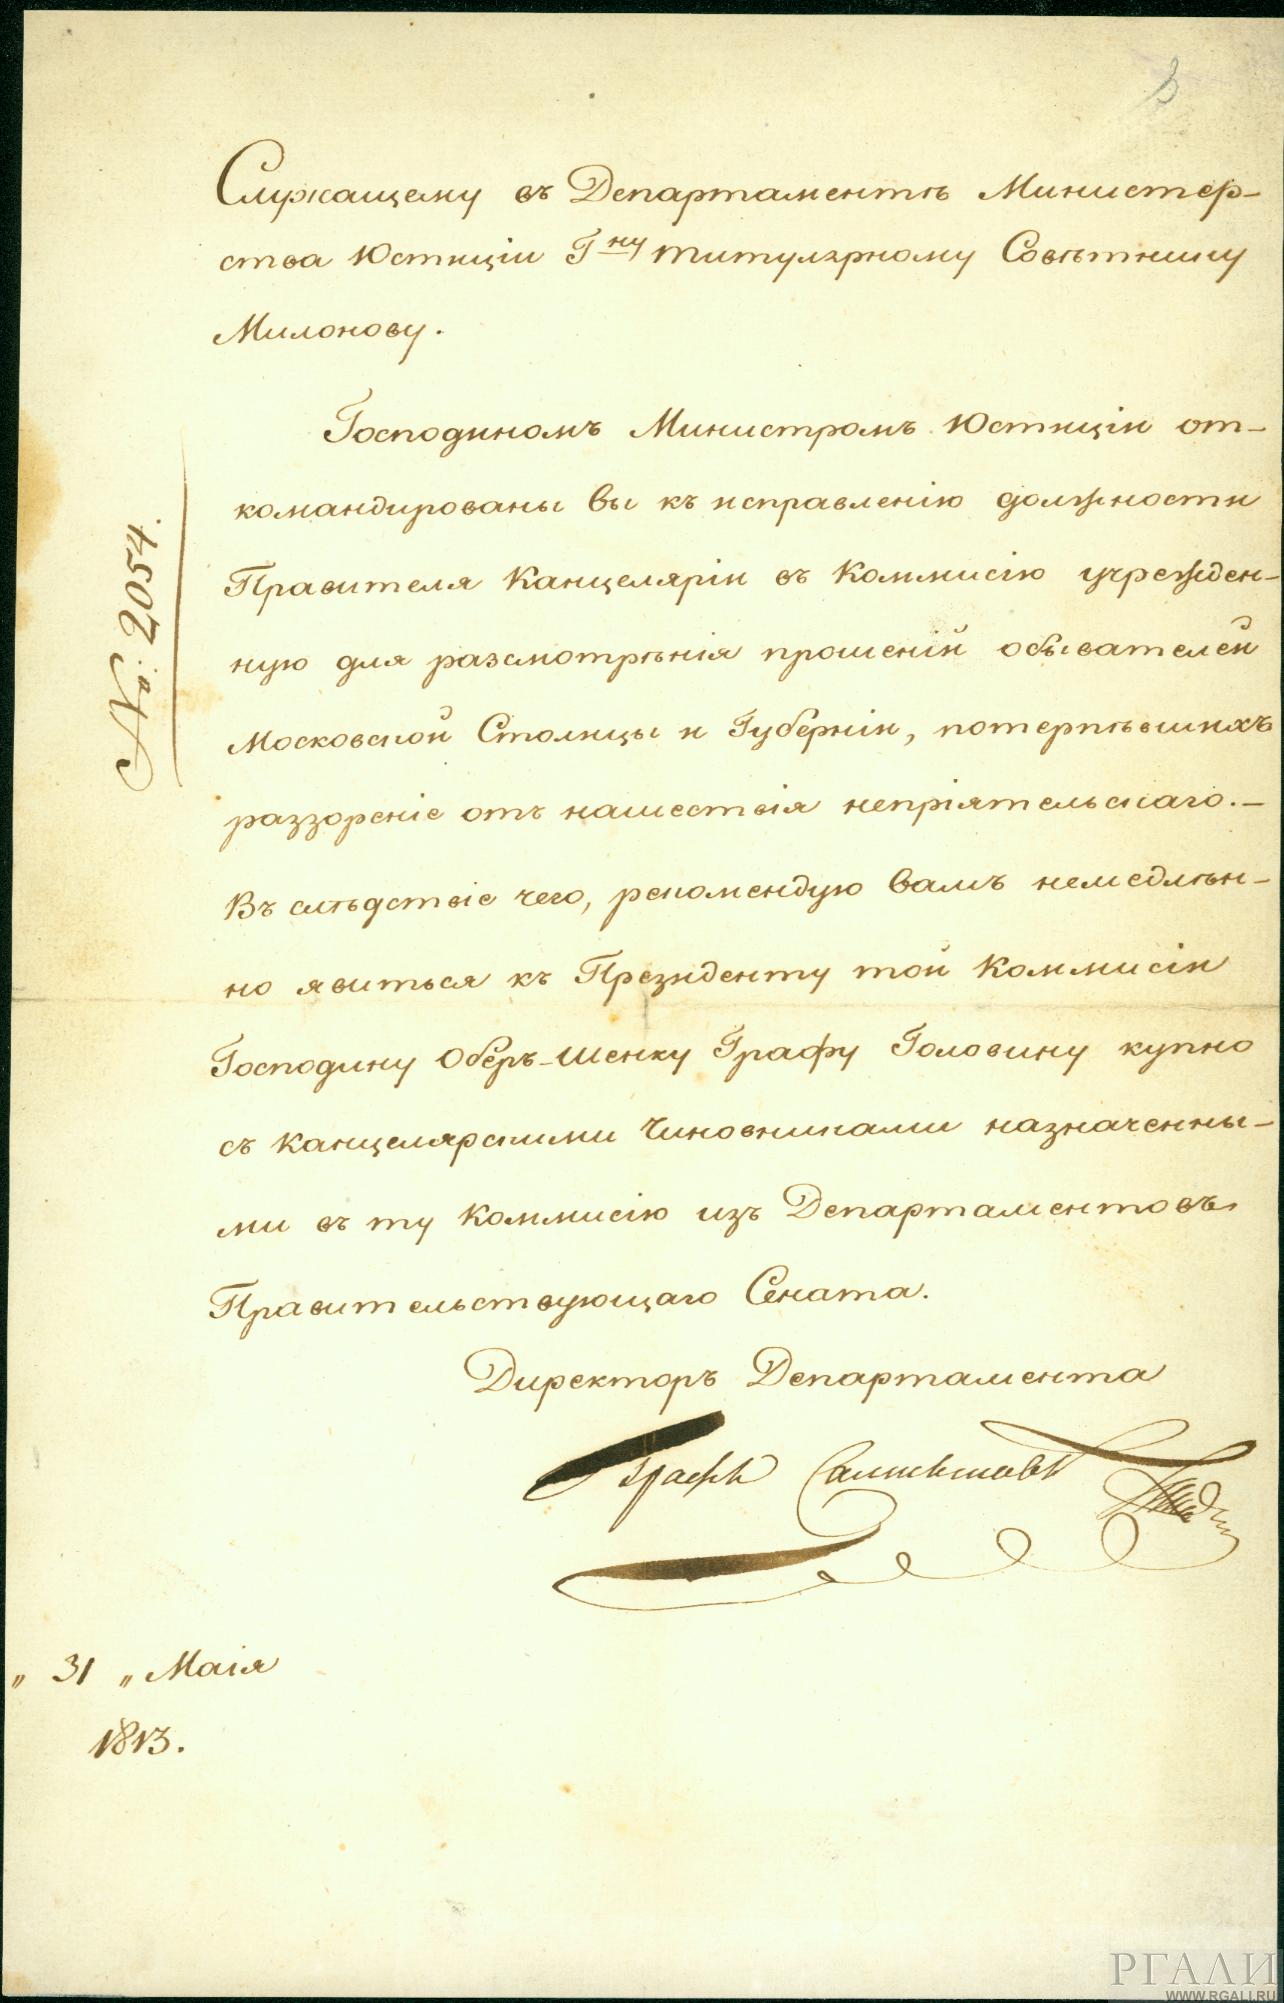 Служащему въ Департаментѣ Министер-
ства Юстиціи Гну Титулярному Совѣтнику
Милонову.
Господиномъ Министромъ Юстиціи от-
командированы вы къ исправленію должности
Правителя Канцеляріи въ Коммисію учрежден-
ную для разсмотрѣнія прошеній обывателей
Московской Столицы и Губерніи, потерпѣвшихъ
раззореніе отъ нашествія непріятельскаго.-
Въ слѣдствіе чего, рекомендую вамъ немедлѣн-
но явиться къ Президенту той Коммисіи
Господину Оберъ-Шенку Графу Головину купно
съ Канцелярскими Чиновниками назначенны-
ми въ ту Коммисію изъ Департаментовъ
Правительствующаго Сената.
Директоръ Департамента
Графъ Салтыковъ
№: 2054.
„ 31 „ Маія
1813.
РГАЛИ
WWW.RGALI.RU